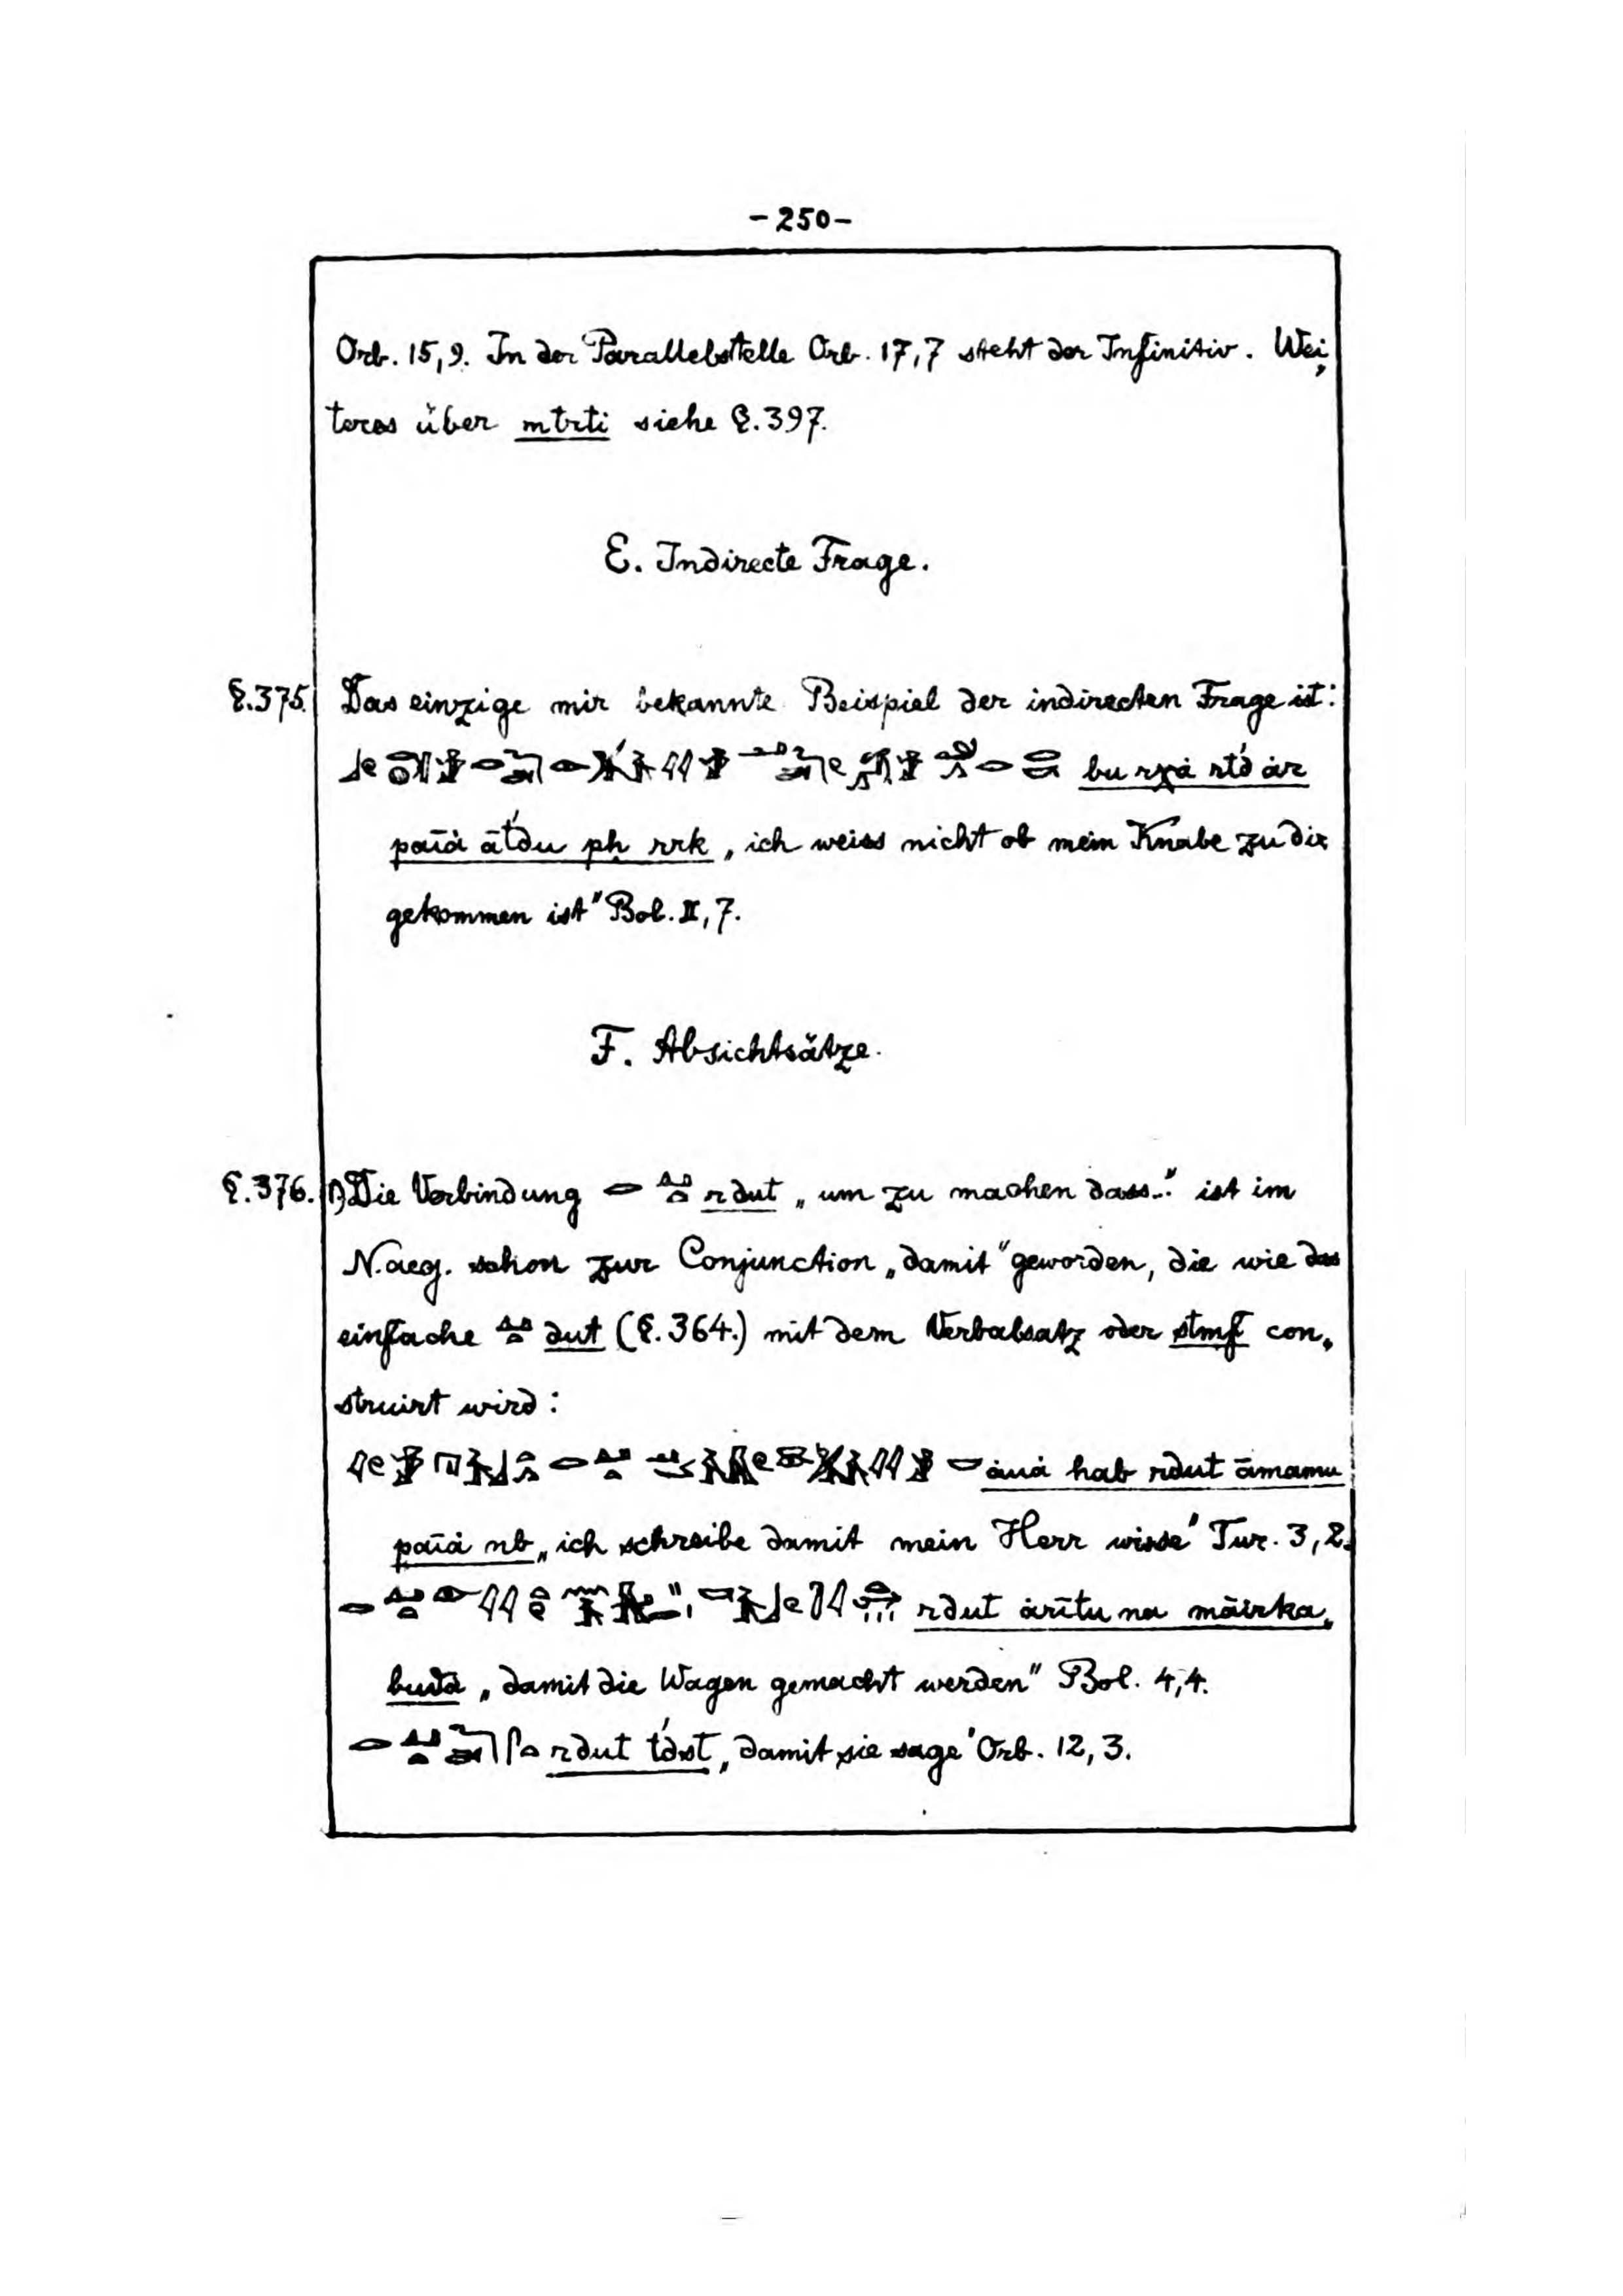 -250-
Orb. 15,9. In der Parallelstelle Orb. 17,7 steht der Infinitiv. Wei„
teres über mtrti siehe §.397.
E. Indirecte Frage.
§.375. Das einzige mir bekannte Beispiel der indirecten Frage ist:
bu rχȧ rtd́ ȧr
pāiȧ āt́du pḥ rrk „ich weiss nicht ob mein Knabe zu dir
gekommen ist" Bol. II, 7.
F. Absichtsätze.
§.376. 1) Die Verbindung rdut „um zu machen dass.." ist im
N.aeg. schon zur Conjunction „damit" geworden, die wie das
einfache dut (§.364.) mit dem Verbalsatz oder stmf con„
struirt wird:
ȧuȧ hab rdut āmamu
pāiȧ nb „ich schreibe damit mein Herr wisse" Tur. 3,2.
rdut ȧrītu na māirka„
„damit die Wagen gemacht werden" Bol. 4,4.
rdut t́dst „damit sie sage" Orb. 12,3.